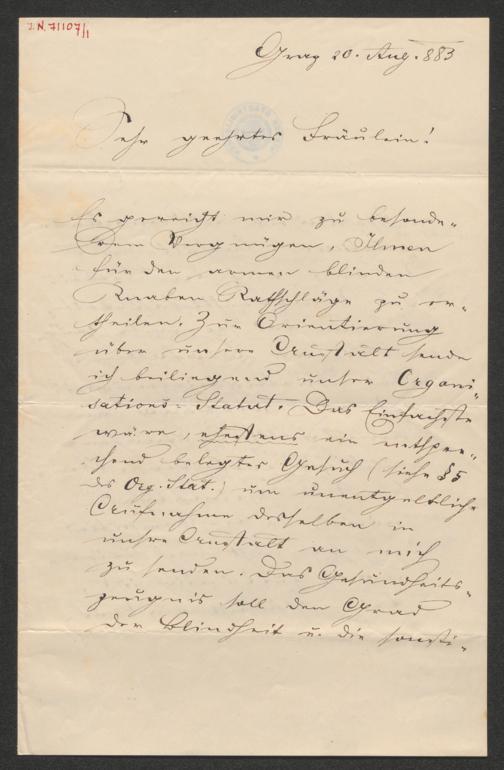 I.N. 71107/1
Graz 20. Aug. 883
Sehr geehrtes Fräulein!
Es gereicht mir zu besonde-
rem Vergnügen, Ihnen
für den armen blinden
Knaben Rathschläge zu er-
theilen. Zur Orientierung
über unsere Anstalt sende
ich beiliegend unser Organi-
sations-Statut. Das Einfachste
wäre, ehestens ein entspre-
chend belegtes Gesuch (siehe §5
des Org. Stat.) um unentgeltliche
Aufnahme desselben in
unsre Anstalt an mich
zu senden. Das Gesundheits-
zeugnis soll den Grad
der Blindheit u. die sonsti-